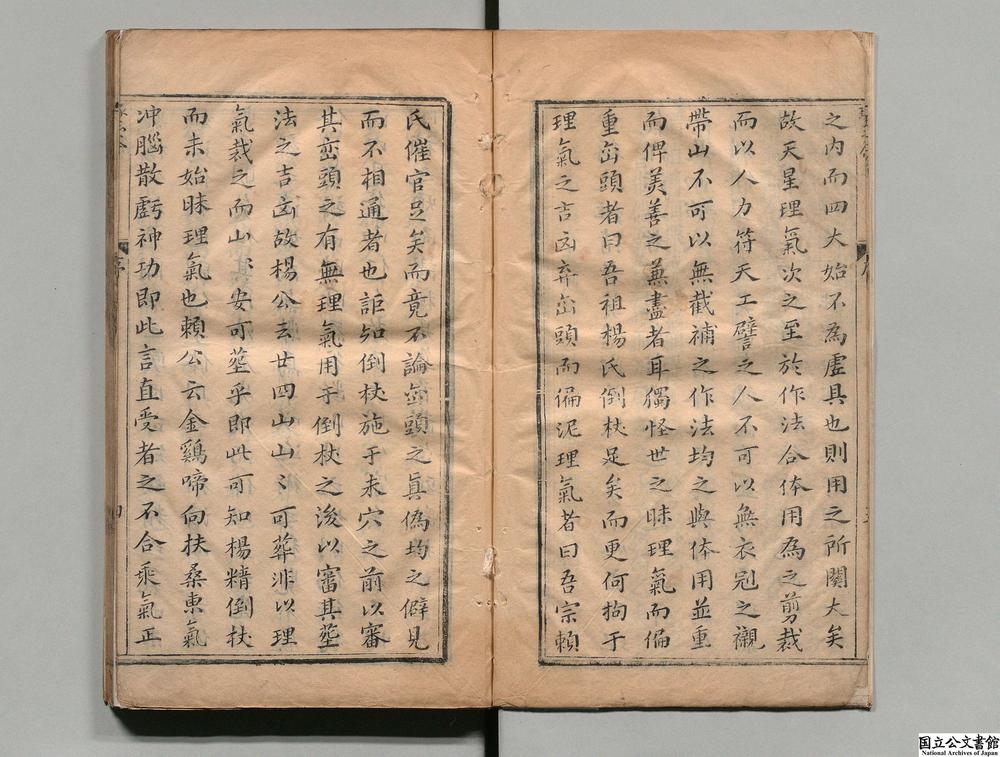 之内而四大始不為虛具也則用之所關大矣
故天星理氣次之至於作法合体用為之剪裁
而以人力符天工譬之人不可以無衣冠之襯
帶山不可以無截補之作法均之與体用並重
而俾美善之兼盡者耳獨怪世之昧理氣而偏
重巒頭者曰吾祖楊氏倒杖足矣而更何拘于
理氣之吉凶弃巒頭而偏泥理氣者曰吾宗賴
氏催官足矣而竟不論巒頭之眞僞均之僻見
而不相通者也詎知倒杖施于未穴之前以審
其巒頭之有無理氣用于倒杖之後以審其塟
法之吉凶故楊公云廿四山山〻可葬非以理
氣裁之而山其安可塟乎即此可知楊精倒杖
而未始昧理氣也賴公云金鷄啼向扶桑東氣
冲腦散虧神功即此言直受者之不合乘氣正
序
序
四
国立公文書館
National Archives of Japan